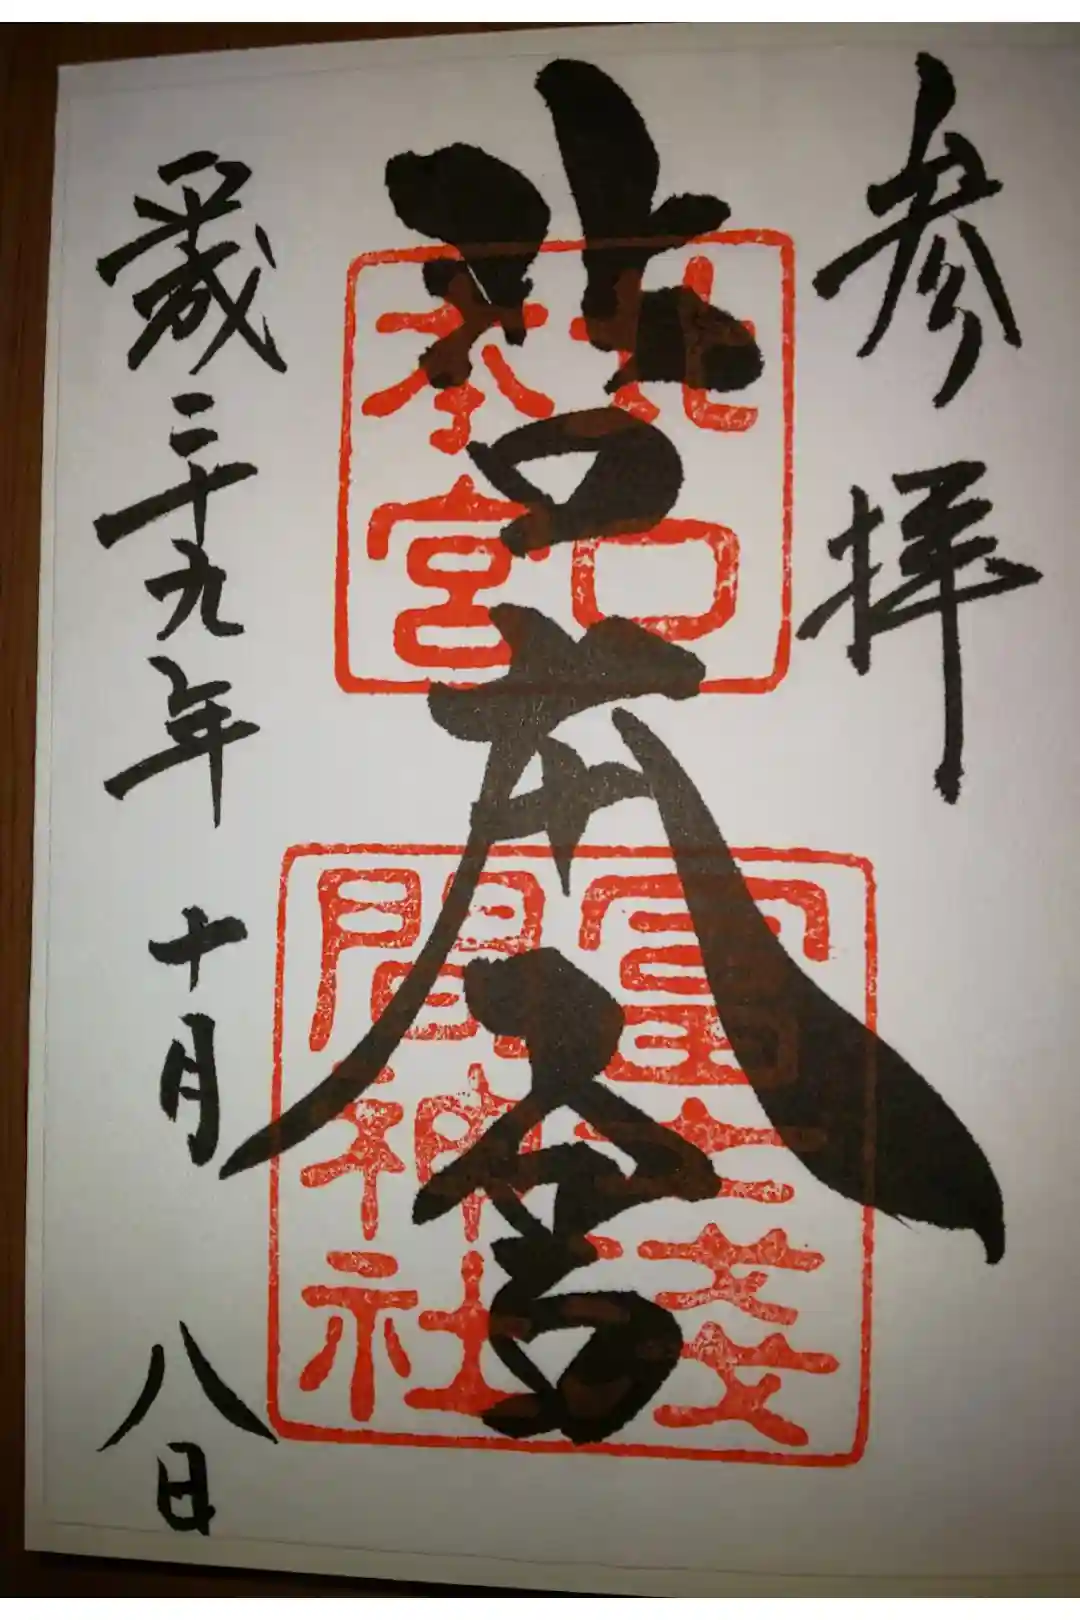 参拝
北口本宮
北口
本宮
冨士浅
間神社
平成二十九年 十月 八日